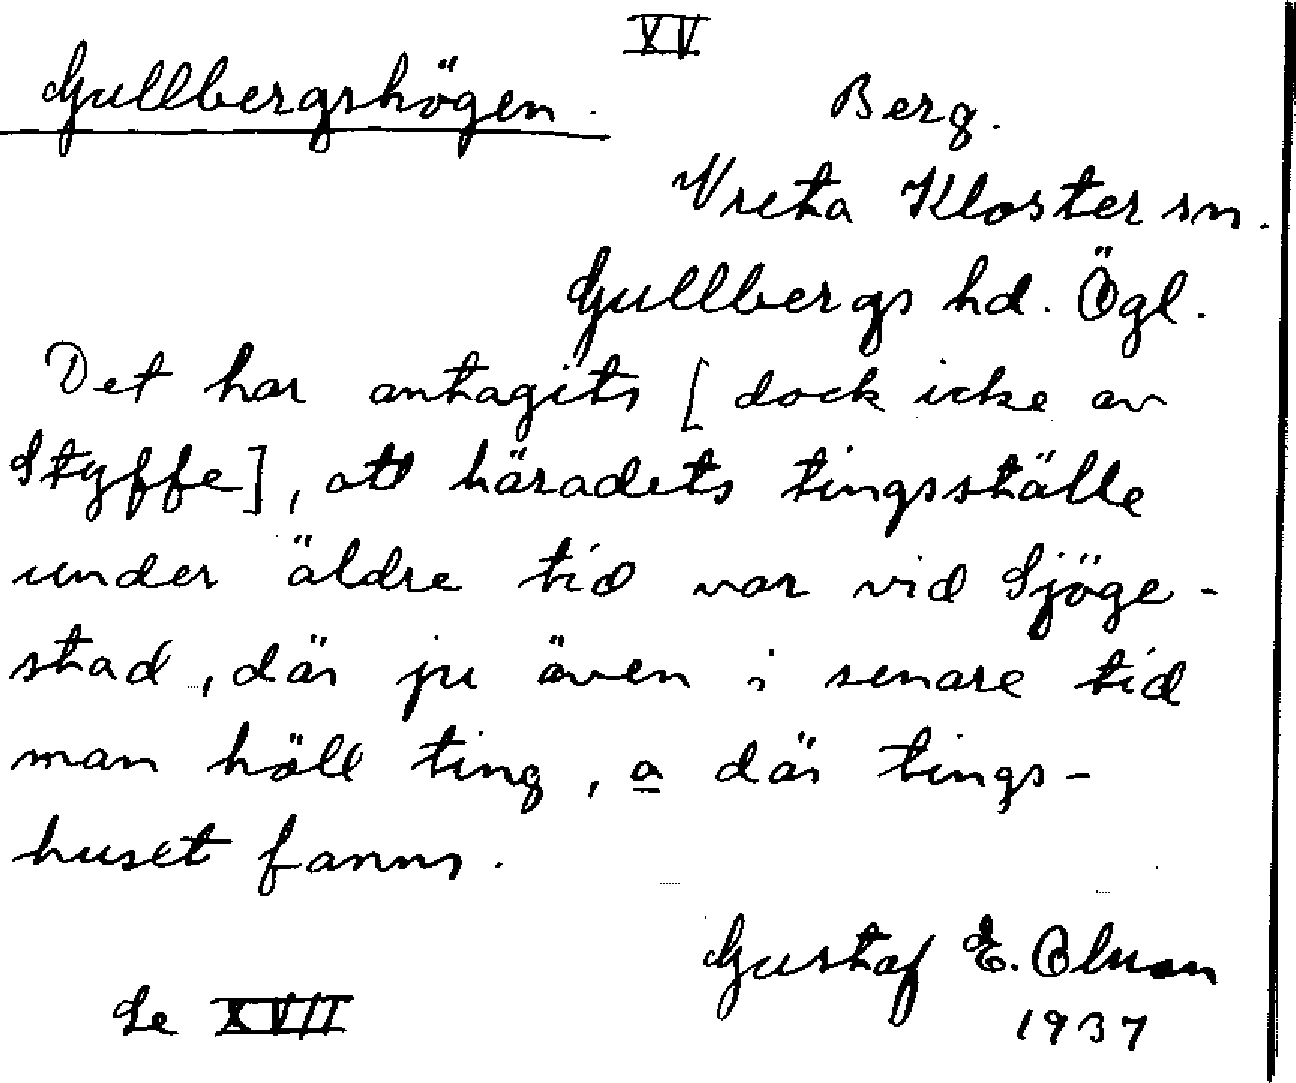 XV
Gullbergshögen.
Berg.
Vreta Kloster sn.
Gullbergs hd. Ögl.
Det har antagits [dock icke av
Styffe], att häradets tingsställe
under äldre tid var vid Sjöge-
stad, där ju även i senare tid
man höll ting, a där tings-
huset fanns.
Gustaf E. Olson
Se XVII
1937